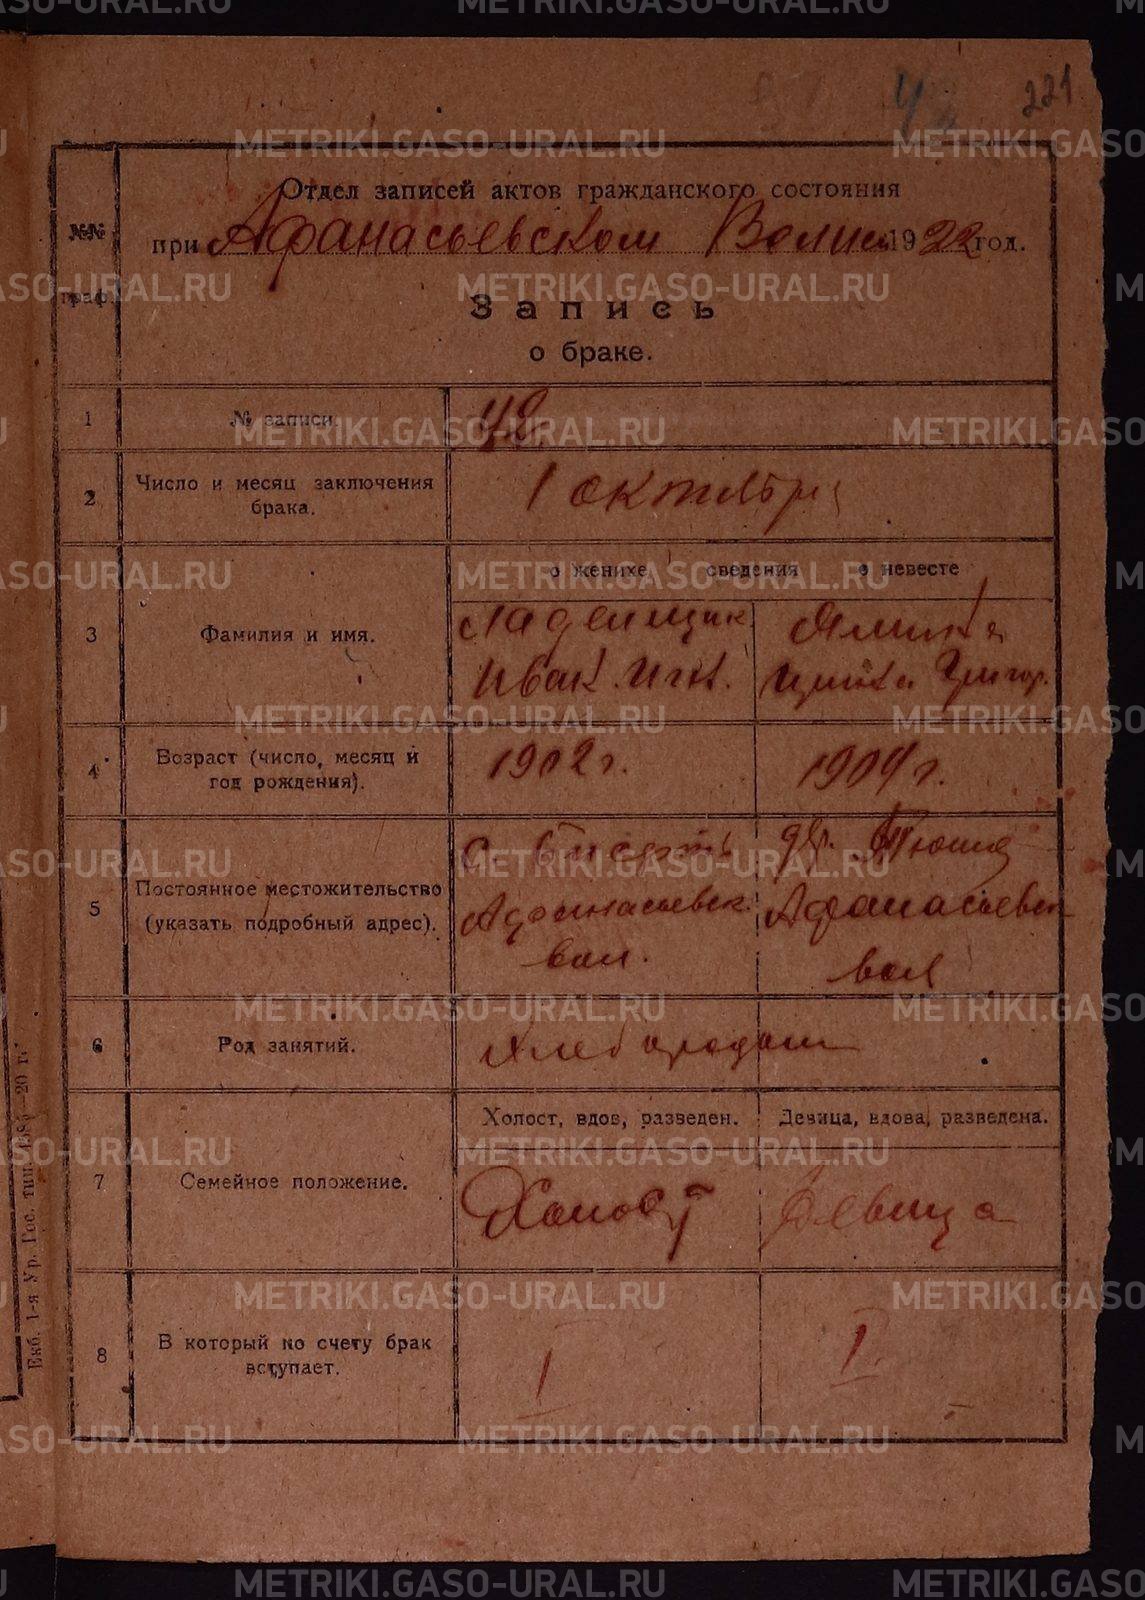 221
Отдел записей актов гражданского состояния
при Афанасьевском Волис 1922 год.
№№ граф.
Запись
о браке.
1 № записи. 42
2 Число и месяц заключения брака. 1 октября
о женихе сведения о невесте
3 Фамилия и имя.
Иван Игн. Григор.
4 Возраст (число, месяц и год рождения). 1902 г. 1904 г.
5 Постоянное местожительство (указать подробный адрес).
с. Бисерть дер.
Афанасьевск. Афанасьевск
вол. вол
6 Род занятий. Хлебородаш
Холост, вдов, разведен. Девица, вдова, разведена.
7 Семейное положение. Холост Девица
8 В который по счету брак вступает. I I
Екб. 1-я Ур. Гос. тип. 20 г.
METRIKI.GASO-URAL.RU